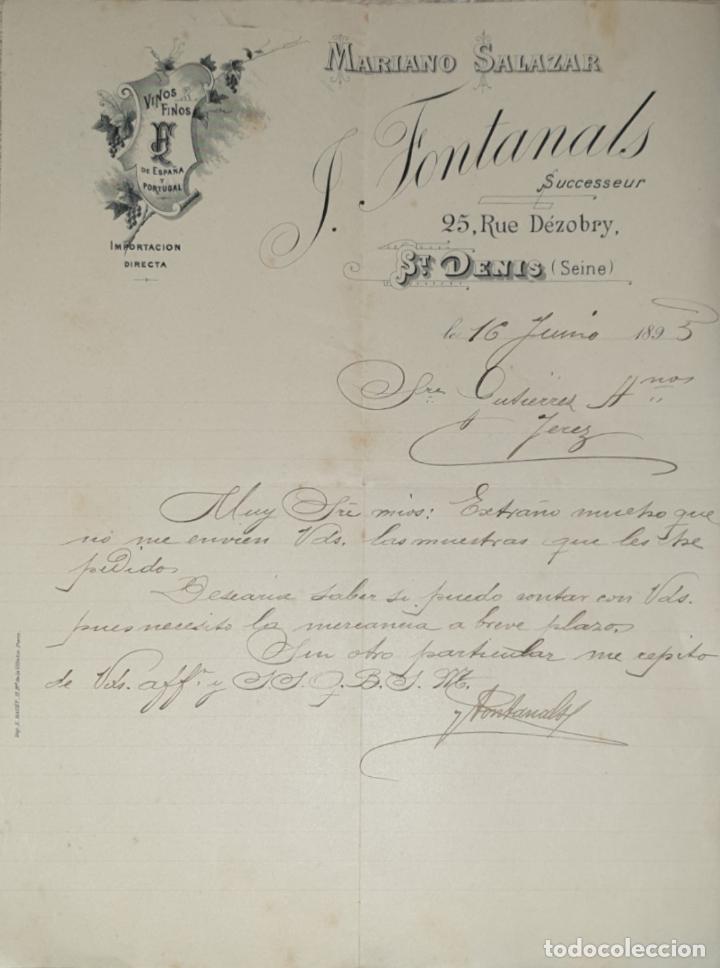 MARIANO SALAZAR
J. Fontanals
Successeur
25, Rue Dézobry,
ST DENIS (Seine)
VINOS
FINOS
DE ESPAÑA
Y
PORTUGAL
IMPORTACION
DIRECTA
le 16 Junio 1893
Sres Gutierrez Hnos
Jerez
Muy Sres mios: Extraño mucho que
no me envien Vds. las muestras que les he
pedido
Desearia saber si puedo contar con Vds.
pues necesito la mercancia a breve plazo.
Sin otro particular me repito
de Vds. aff. y S.S. Q. B. S. M.
J Fontanals
todocoleccion